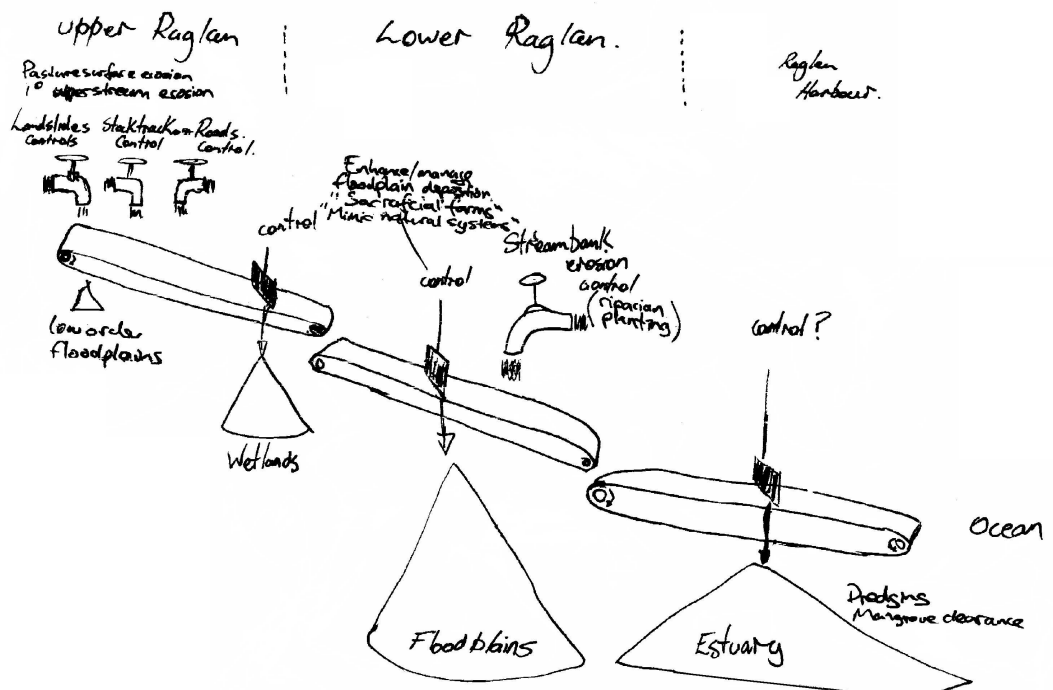 upper Raglan
Lower Raglan.
Raglan
Harbour.
Pasture surface erosion
1° stream erosion
Landslides
controls
Stocktrack
Control
Roads.
Control.
control
Enhance/manage
floodplain deposition
"Sacraficial farms"
"Mimic natural systems"
control
Streambank
erosion
control
(riparian
planting)
control?
low order
floodplains
Wetlands
Floodplains
Estuary
Ocean
Dredging
Mangrove clearance